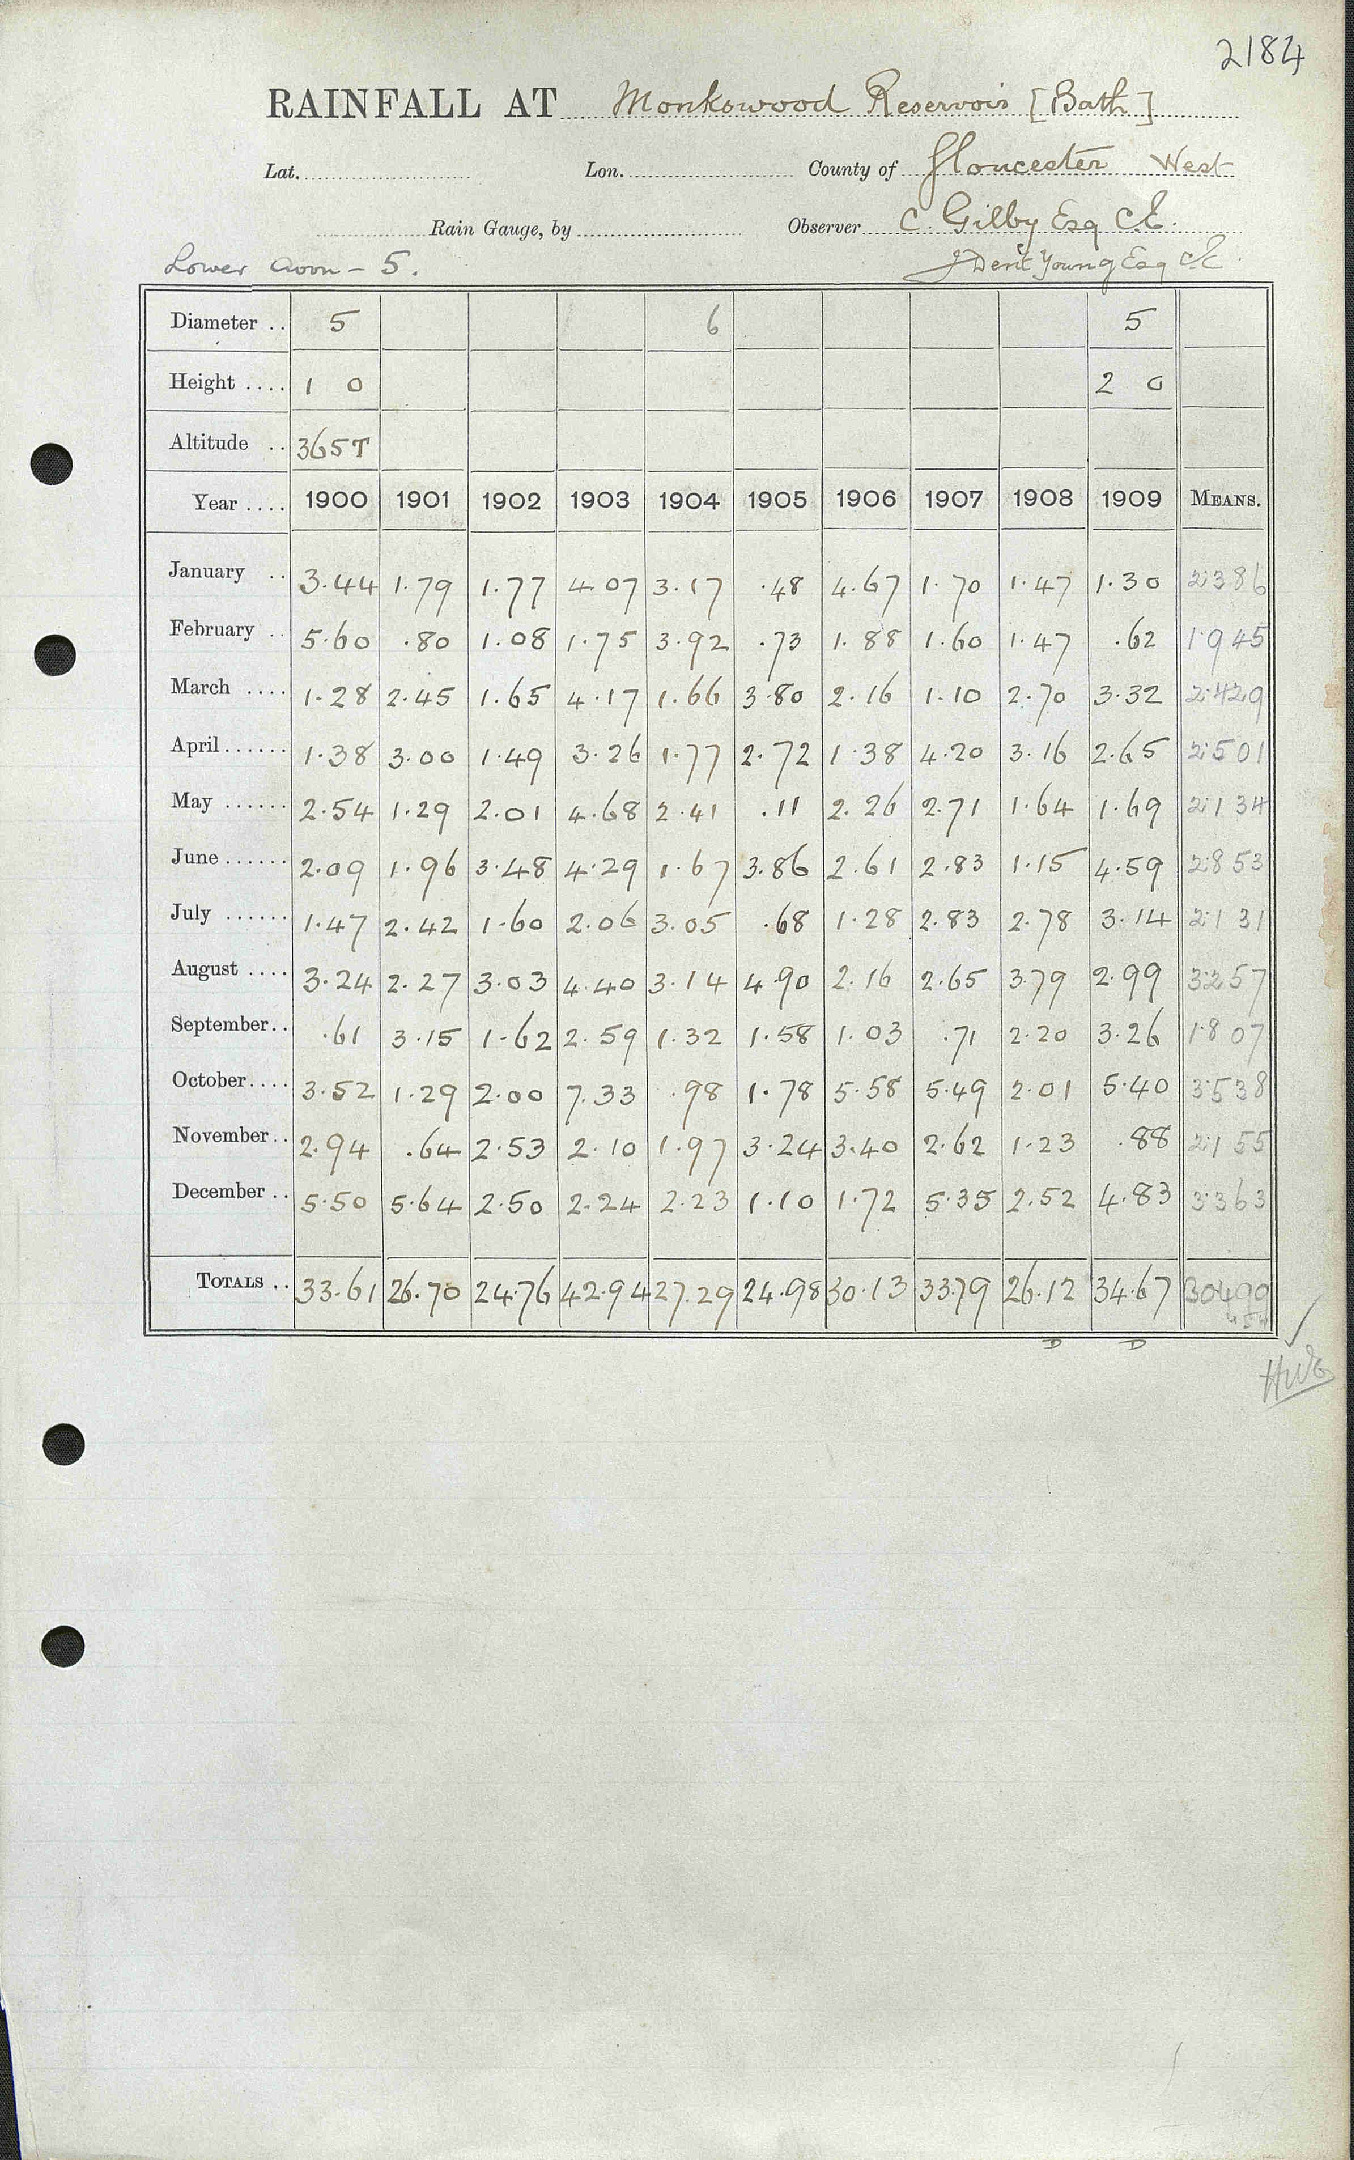 2184
RAINFALL AT Monkswood Reservoir [Bath]
Lat. Lon. County of Gloucester West
Rain Gauge, by Observer C. Gilby Esq C.E.
Lower Avon - 5. J Dent Young Esq C.E.
Diameter .. 5 6 5
Height .... 1 0 2 0
Altitude .. 365T
Year .... 1900 1901 1902 1903 1904 1905 1906 1907 1908 1909 MEANS.
January .. 3.44 1.79 1.77 4.07 3.17 .48 4.67 1.70 1.47 1.30 2.386
February .. 5.60 .80 1.08 1.75 3.92 .73 1.88 1.60 1.47 .62 1.945
March .... 1.28 2.45 1.65 4.17 1.66 3.80 2.16 1.10 2.70 3.32 2.429
April ...... 1.38 3.00 1.49 3.26 1.77 2.72 1.38 4.20 3.16 2.65 2.501
May ...... 2.54 1.29 2.01 4.68 2.41 .11 2.26 2.71 1.64 1.69 2.134
June ...... 2.09 1.96 3.48 4.29 1.67 3.86 2.61 2.83 1.15 4.59 2.853
July ...... 1.47 2.42 1.60 2.06 3.05 .68 1.28 2.83 2.78 3.14 2.131
August .... 3.24 2.27 3.03 4.40 3.14 4.90 2.16 2.65 3.79 2.99 3.257
September .. .61 3.15 1.62 2.59 1.32 1.58 1.03 .71 2.20 3.26 1.807
October .... 3.52 1.29 2.00 7.33 .98 1.78 5.58 5.49 2.01 5.40 3.538
November .. 2.94 .64 2.53 2.10 1.97 3.24 3.40 2.62 1.23 .88 2.155
December .. 5.50 5.64 2.50 2.24 2.23 1.10 1.72 5.35 2.52 4.83 3.363
TOTALS .. 33.61 26.70 24.76 42.94 27.29 24.98 30.13 33.79 26.12 34.67 30.499
D D